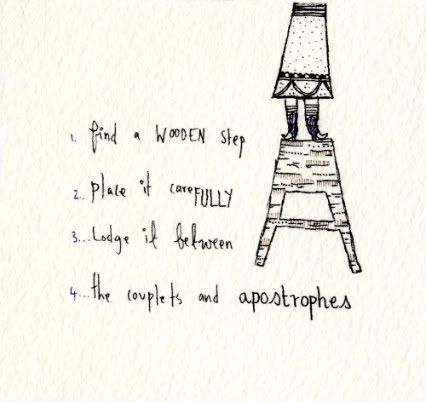 1. find a WOODEN step
2.. place it careFULLY
3...Lodge it between
4...the couplets and apostrophes